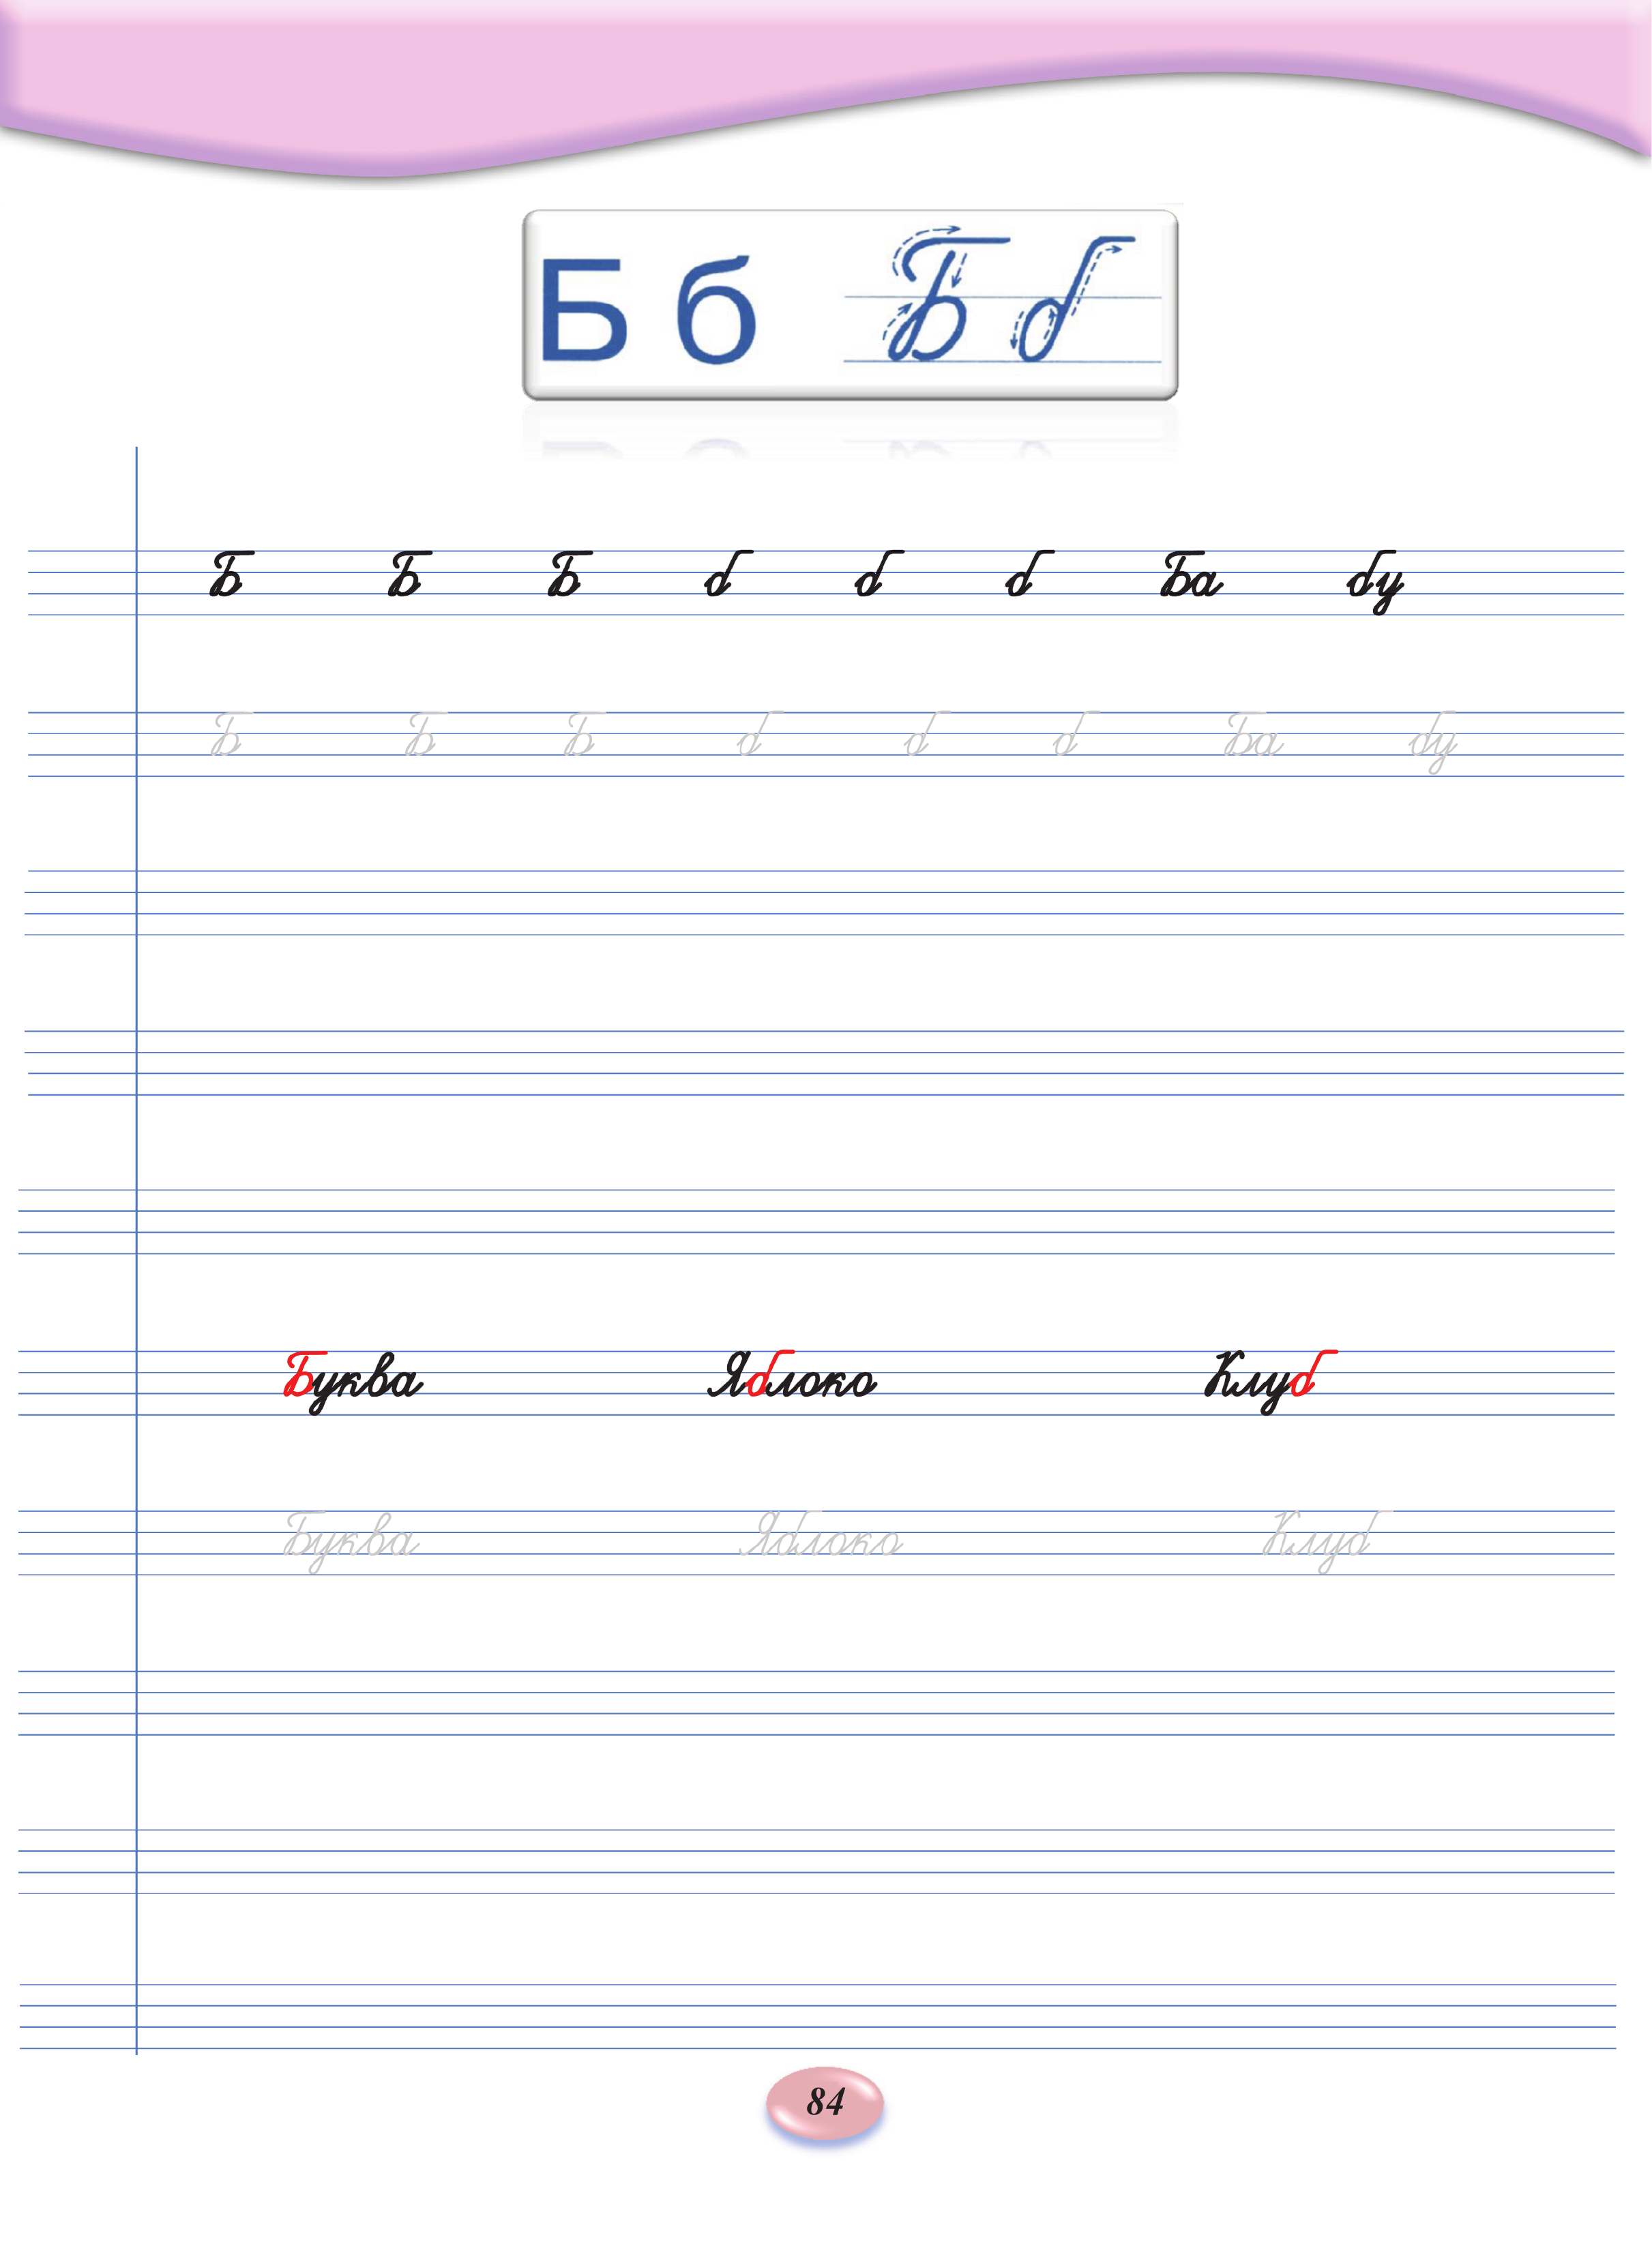 Б б Б б
Б Б Б б б б Ба бу
Б Б Б б б б Ба бу
Буква Яблоко Клуб
Буква Яблоко Клуб
84